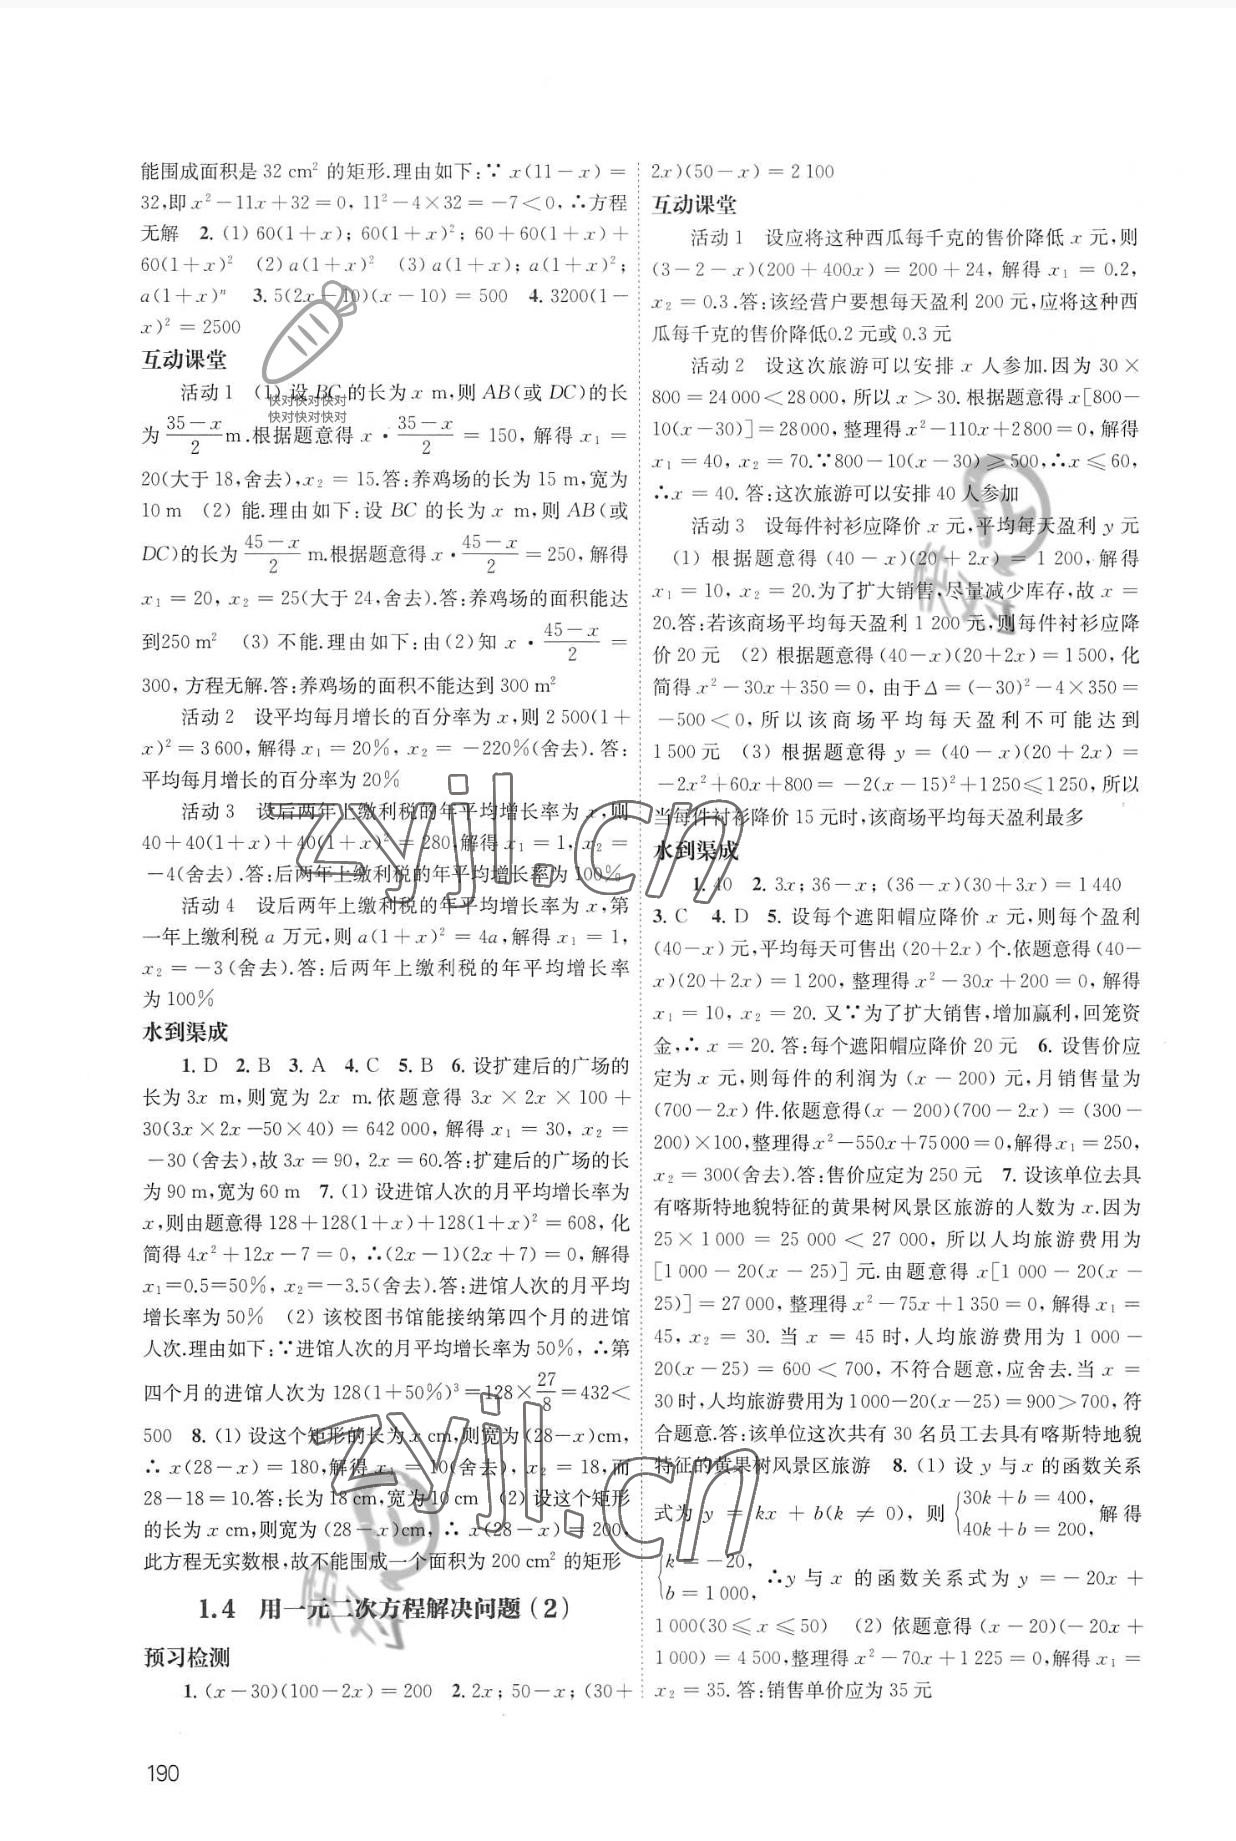 能围成面积是 32 cm² 的矩形.理由如下:∵ x(11－x)＝
32,即 x²－11x＋32＝0, 11²－4×32＝－7＜0,∴方程
无解　2. (1) 60(1＋x); 60(1＋x)²; 60＋60(1＋x)＋
60(1＋x)²　(2) a(1＋x)²　(3) a(1＋x); a(1＋x)²;
a(1＋x)ⁿ　3. 5(2x－10)(x－10)＝500　4. 3200(1－
x)²＝2500
互动课堂
活动 1　(1) 设 BC 的长为 x m,则 AB(或 DC)的长
快对快对快对
快对快对快对
为 (35－x)/2 m.根据题意得 x·(35－x)/2＝150, 解得 x₁＝
20(大于 18,舍去),x₂＝15.答:养鸡场的长为 15 m,宽为
10 m　(2) 能.理由如下:设 BC 的长为 x m,则 AB(或
DC)的长为 (45－x)/2 m.根据题意得 x·(45－x)/2＝250, 解得
x₁＝20, x₂＝25(大于 24,舍去).答:养鸡场的面积能达
到250 m²　(3) 不能.理由如下:由(2)知 x·(45－x)/2＝
300, 方程无解.答:养鸡场的面积不能达到 300 m²
活动 2　设平均每月增长的百分率为 x,则 2 500(1＋
x)²＝3 600, 解得 x₁＝20%, x₂＝－220%(舍去).答:
平均每月增长的百分率为 20%
活动 3　设后两年上缴利税的年平均增长率为 x,则
40＋40(1＋x)＋40(1＋x)²＝280,解得 x₁＝1, x₂＝
－4(舍去).答:后两年上缴利税的年平均增长率为 100%
活动 4　设后两年上缴利税的年平均增长率为 x,第
一年上缴利税 a 万元,则 a(1＋x)²＝4a,解得 x₁＝1,
x₂＝－3(舍去).答:后两年上缴利税的年平均增长率
为 100%
水到渠成
1. D　2. B　3. A　4. C　5. B　6. 设扩建后的广场的
长为 3x m,则宽为 2x m.依题意得 3x×2x×100＋
30(3x×2x－50×40)＝642 000, 解得 x₁＝30, x₂＝
－30 (舍去),故 3x＝90, 2x＝60.答:扩建后的广场的长
为 90 m,宽为 60 m　7. (1) 设进馆人次的月平均增长率为
x,则由题意得 128＋128(1＋x)＋128(1＋x)²＝608, 化
简得 4x²＋12x－7＝0, ∴(2x－1)(2x＋7)＝0, 解得
x₁＝0.5＝50%, x₂＝－3.5(舍去).答:进馆人次的月平均
增长率为 50%　(2) 该校图书馆能接纳第四个月的进馆
人次.理由如下:∵进馆人次的月平均增长率为 50%, ∴第
四个月的进馆人次为 128(1＋50%)³＝128×27/8＝432＜
500　8. (1) 设这个矩形的长为 x cm,则宽为(28－x)cm,
∴ x(28－x)＝180,解得 x₁＝10(舍去), x₂＝18,而
28－18＝10.答:长为 18 cm,宽为 10 cm　(2) 设这个矩形
的长为 x cm,则宽为 (28－x)cm, ∴ x(28－x)＝200,
此方程无实数根,故不能围成一个面积为 200 cm² 的矩形
1.4　用一元二次方程解决问题(2)
预习检测
1. (x－30)(100－2x)＝200　2. 2x; 50－x; (30＋
2x)(50－x)＝2 100
互动课堂
活动 1　设应将这种西瓜每千克的售价降低 x 元,则
(3－2－x)(200＋400x)＝200＋24, 解得 x₁＝0.2,
x₂＝0.3.答:该经营户要想每天盈利 200 元,应将这种西
瓜每千克的售价降低0.2 元或 0.3 元
活动 2　设这次旅游可以安排 x 人参加.因为 30×
800＝24 000＜28 000, 所以 x＞30. 根据题意得 x[800－
10(x－30)]＝28000, 整理得 x²－110x＋2 800＝0, 解得
x₁＝40, x₂＝70.∵800－10(x－30)≥500,∴x≤60,
∴x＝40. 答:这次旅游可以安排 40 人参加
活动 3　设每件衬衫应降价 x 元,平均每天盈利 y 元
(1) 根据题意得 (40－x)(20＋2x)＝1 200, 解得
x₁＝10, x₂＝20.为了扩大销售,尽量减少库存,故 x＝
20.答:若该商场平均每天盈利 1 200 元,则每件衬衫应降
价 20 元　(2) 根据题意得 (40－x)(20＋2x)＝1 500, 化
简得 x²－30x＋350＝0, 由于 Δ＝(－30)²－4×350＝
－500＜0, 所以该商场平均每天盈利不可能达到
1 500 元　(3) 根据题意得 y＝(40－x)(20＋2x)＝
－2x²＋60x＋800＝－2(x－15)²＋1 250≤1 250, 所以
当每件衬衫降价 15 元时,该商场平均每天盈利最多
水到渠成
1. 40　2. 3x; 36－x; (36－x)(30＋3x)＝1 440
3. C　4. D　5. 设每个遮阳帽应降价 x 元,则每个盈利
(40－x) 元,平均每天可售出 (20＋2x) 个.依题意得(40－
x)(20＋2x)＝1 200, 整理得 x²－30x＋200＝0, 解得
x₁＝10, x₂＝20. 又∵为了扩大销售,增加赢利,回笼资
金,∴ x＝20. 答:每个遮阳帽应降价 20 元　6. 设售价应
定为 x 元,则每件的利润为 (x－200) 元,月销售量为
(700－2x) 件.依题意得(x－200)(700－2x)＝(300－
200)×100,整理得x²－550x＋75 000＝0,解得x₁＝250,
x₂＝300(舍去).答:售价应定为 250 元　7. 设该单位去具
有喀斯特地貌特征的黄果树风景区旅游的人数为 x.因为
25×1 000＝25 000＜27 000, 所以人均旅游费用为
[1 000－20(x－25)] 元.由题意得 x[1 000－20(x－
25)]＝27 000, 整理得 x²－75x＋1 350＝0, 解得 x₁＝
45, x₂＝30. 当 x＝45 时, 人均旅游费用为 1 000－
20(x－25)＝600＜700, 不符合题意, 应舍去. 当 x＝
30 时, 人均旅游费用为 1 000－20(x－25)＝900＞700, 符
合题意.答:该单位这次共有 30 名员工去具有喀斯特地貌
特征的黄果树风景区旅游　8. (1) 设 y 与 x 的函数关系
式为 y＝kx＋b(k≠0), 则 {30k＋b＝400, 40k＋b＝200, 解得
{k＝－20, b＝1 000, ∴y 与 x 的函数关系式为 y＝－20x＋
1 000(30≤x≤50)　(2) 依题意得 (x－20)(－20x＋
1 000)＝4 500, 整理得 x²－70x＋1 225＝0, 解得 x₁＝
x₂＝35. 答:销售单价应为 35 元
zyjl.cn
zyjl.cn
快对
快对
190